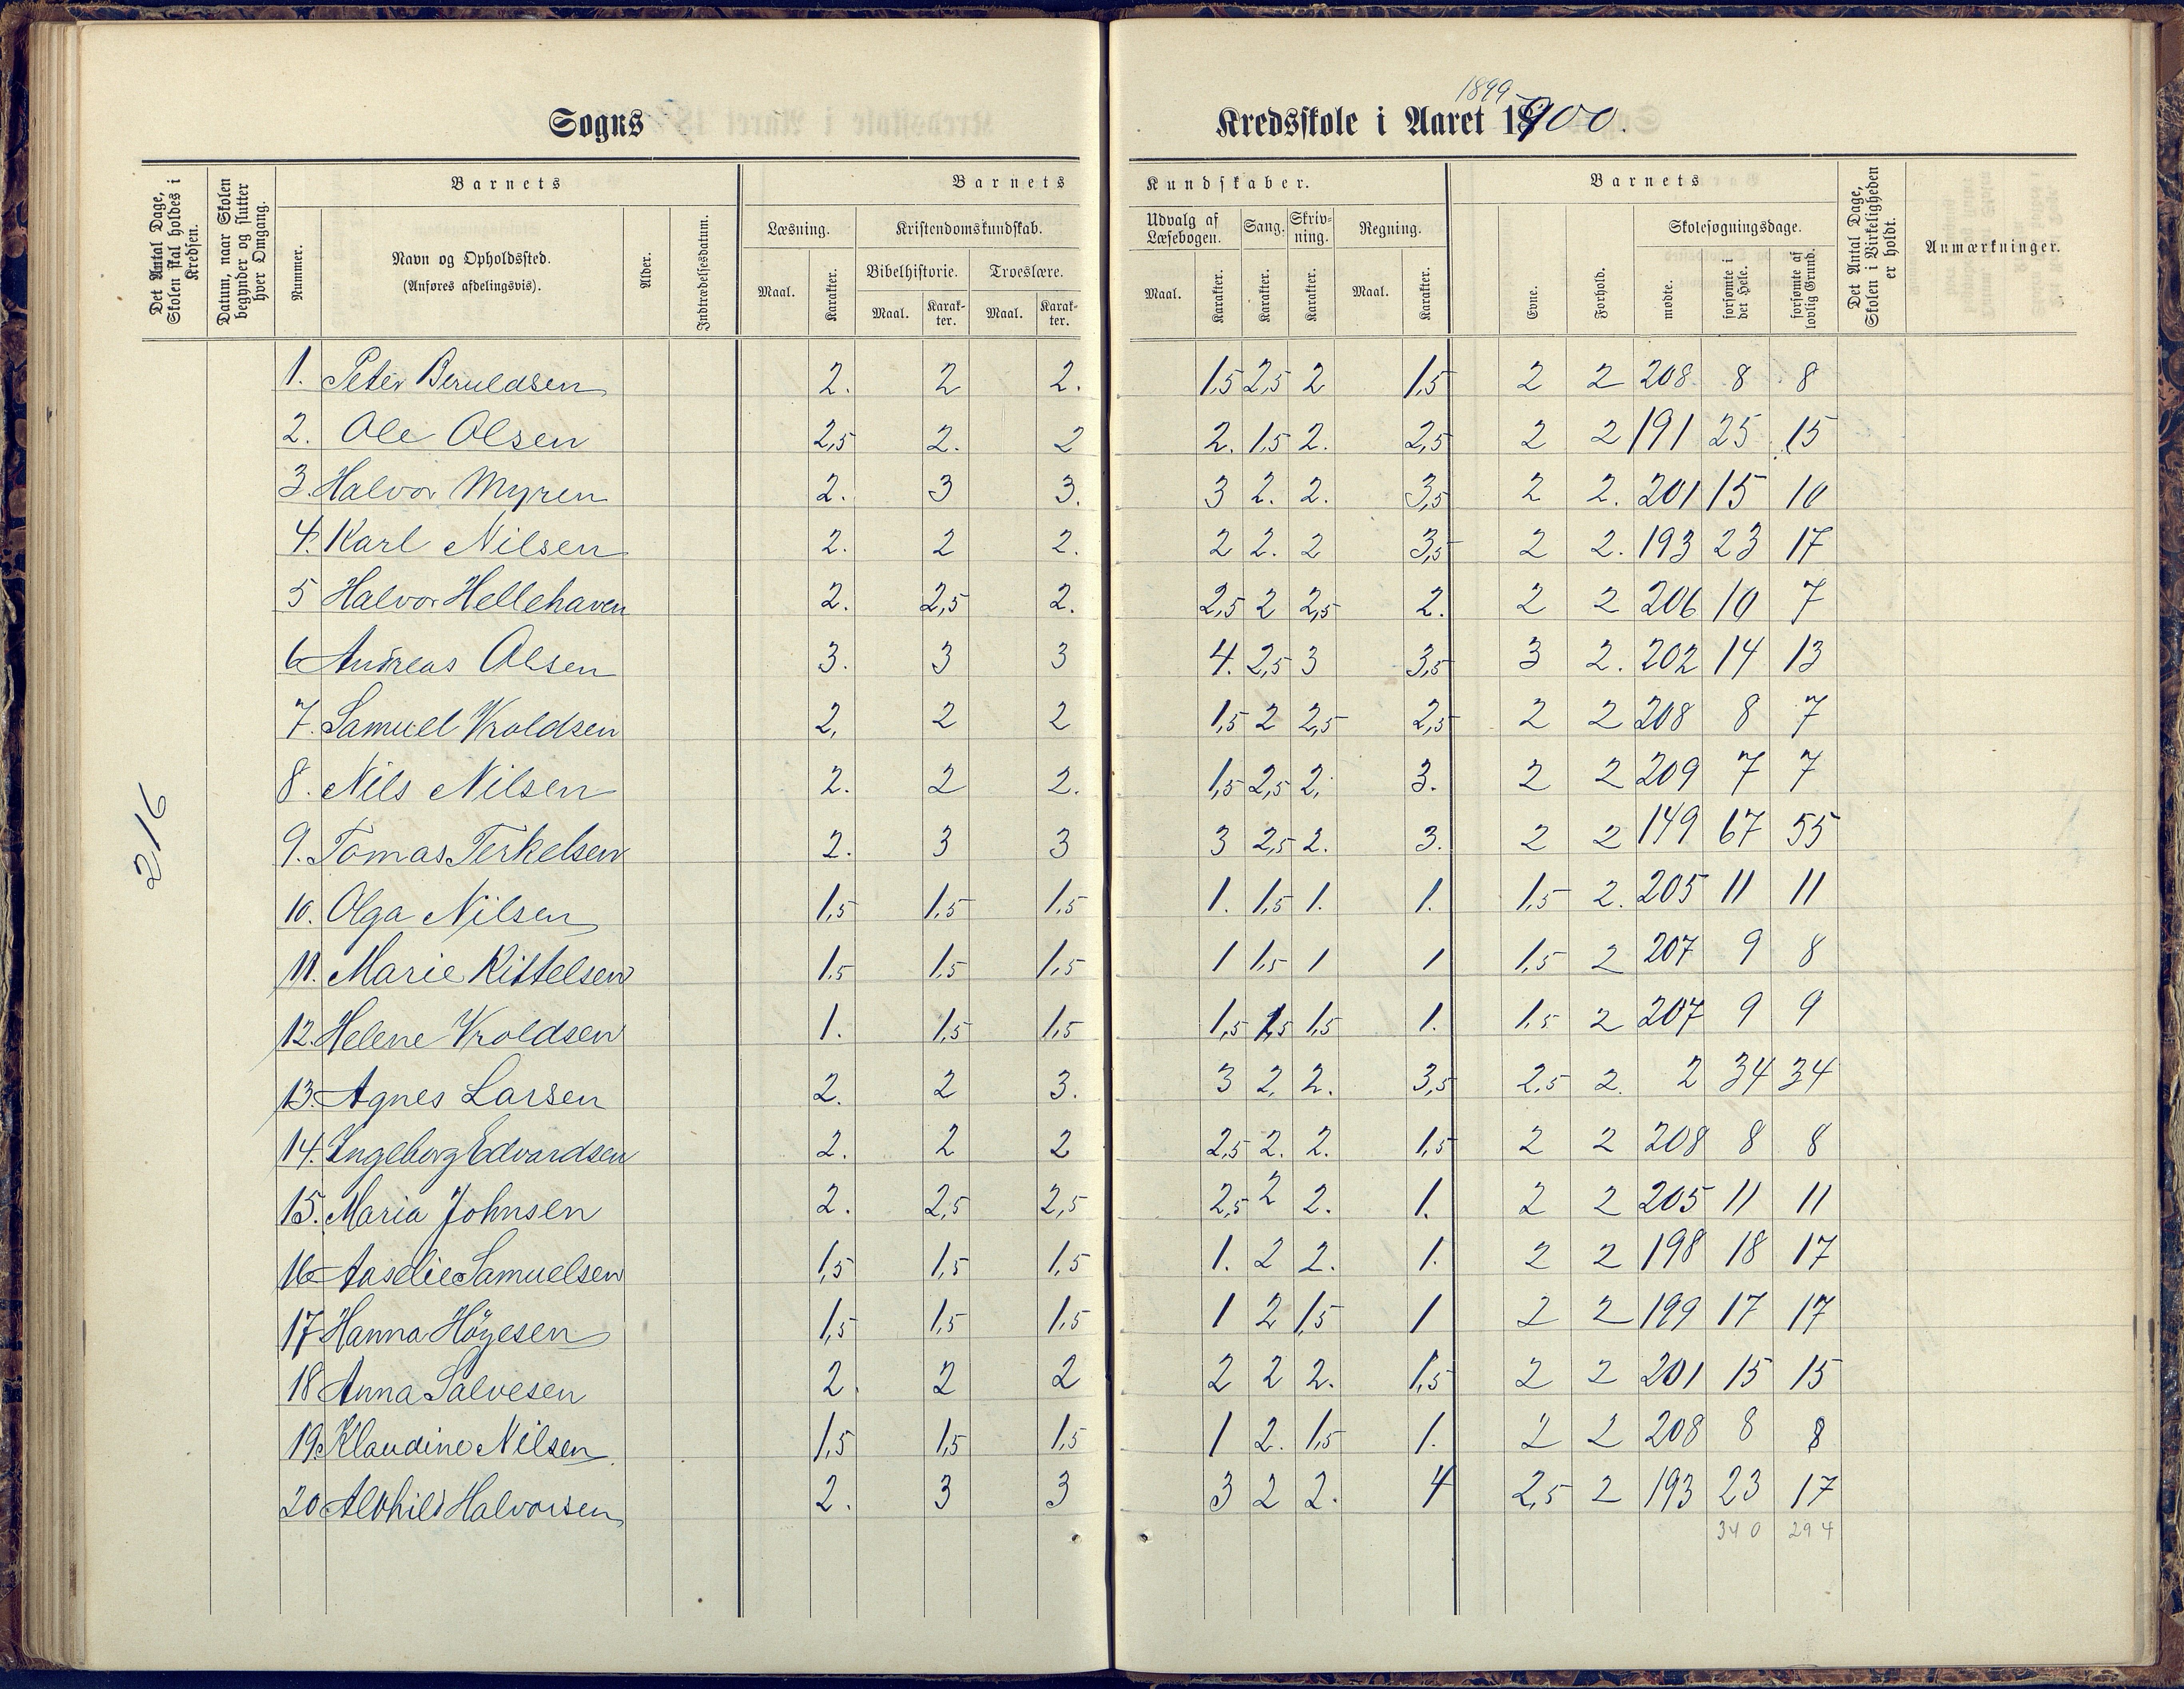 Sogns
1899-
Kredsskole i Aaret 18900.
Det Antal Dage, Skolen skal holdes i Kredsen.
Datum, naar Skolen begynder og slutter hver Omgang.
Barnets
Nummer.
Navn og Opholdssted.
(Anføres afdelingsvis).
Alder.
Indtrædelsesdatum.
Barnets
Læsning.
Maal.
Karakter.
Kristendomskundskab.
Bibelhistorie.
Maal.
Karak-
ter.
Troeslære.
Maal.
Karak-
ter.
Kundskaber.
Udvalg af
Læsebogen.
Maal.
Karakter.
Sang.
Karakter.
Skriv-
ning.
Karakter.
Regning.
Maal.
Karakter.
Barnets
Evne.
Forhold.
Skolesøgningsdage.
mødte.
forsømte i det Hele.
forsømte af lovlig Grund.
Det Antal Dage, Skolen i Virkeligheden er holdt.
Anmærkninger.
216
1. Peter Beruldsen 2. 2 2. 1,5 2,5 2 1,5 2 2 208 8 8
2. Ole Olsen 2,5 2. 2 2. 1,5 2. 2,5 2 2 191 25 15
3. Halvor Myren 2. 3 3. 3 2. 2. 3,5 2 2. 201 15 10
4. Karl Nilsen 2. 2 2. 2 2. 2 3,5 2 2. 193 23 17
5 Halvor Hellehaven 2. 2,5 2. 2,5 2 2,5 2. 2 2 206 10 7
6 Andreas Olsen 3. 3 3 4. 2,5 3 3,5 3 2. 202 14 13
7. Samuel Vroldsen 2, 2 2 1,5 2 2,5 2,5 2 2 208 8 7
8. Nils Nilsen 2. 2 2. 1,5 2,5 2. 3. 2 2 209 7 7
9. Tomas Terkelsen 2. 3 3 3 2,5 2. 3. 2 2 149 67 55
10. Olga Nilsen 1,5 1,5 1,5 1. 1,5 1. 1. 1,5 2. 205 11 11
11. Marie Kittelsen 1,5 1,5 1,5 1 1,5 1 1 1,5 2 207 9 8
12. Helene Vroldsen 1. 1,5 1,5 1,5 1,5 1,5 1. 1,5 2 207 9 9
13. Agnes Larsen 2. 2 3. 3 2, 2. 3,5 2,5 2. 2 34 34
14. Ingeborg Edvardsen 2. 2 2 2,5 2. 2. 1,5 2 2 208 8 8
15. Maria Johnsen 2. 2,5 2,5 2,5 2 2. 1. 2 2 205 11 11
16 Aaselie Samuelsen 1,5 1,5 1,5 1. 2 2. 1. 2 2 198 18 17
17 Hanna Høyesen 1,5 1,5 1,5 1 2 1,5 1 2 2 199 17 17
18 Anna Salvesen 2. 2 2 2 2 2. 1,5 2 2 201 15 15
19. Klaudine Nilsen 1,5 1,5 1,5 1 2. 1,5 1. 2 2 208 8 8
20 Alvhild Halvorsen 2. 3 3 3 2 2. 4 2,5 2 193 23 17
340 294